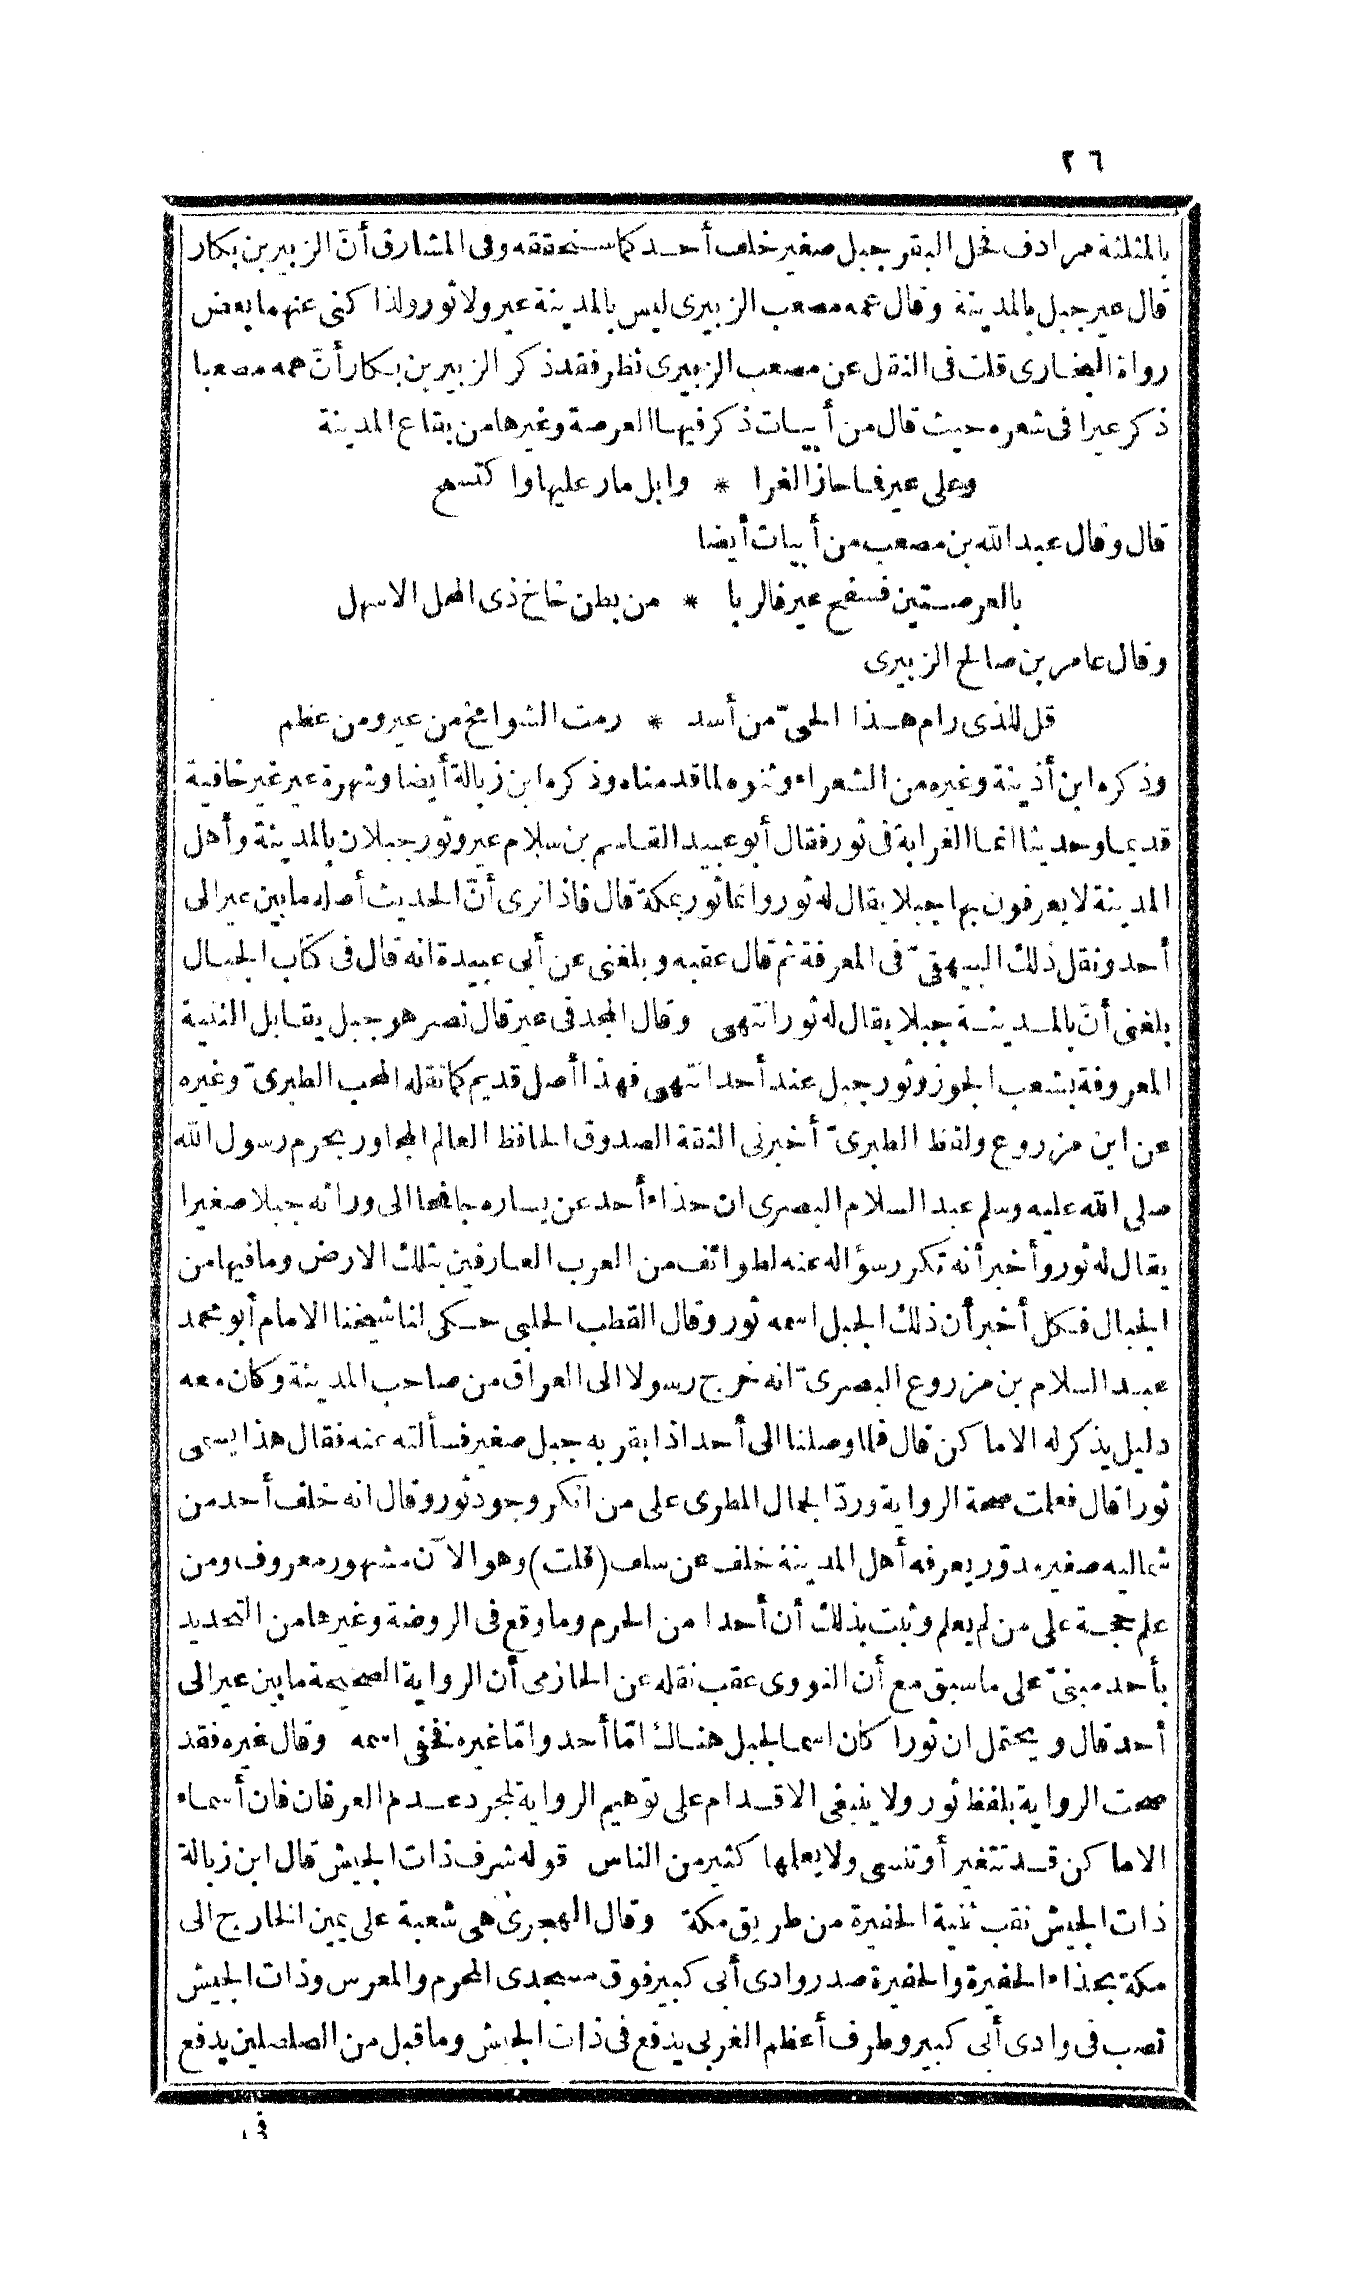 ٢٦
بالمثلثة مرادف فحل البقر جبل صغير خلف أحد كما سنحققه وفى المشارق أنّ الزبير بن بكار
قال عير جبل بالمدينة وقال عمه مصعب الزبيرى ليس بالمدينة عير ولا ثور ولذا كنى عنهما بعض
رواة البخارى قلت فى النقل عن مصعب الزبيرى نظر فقد ذكر الزبير بن بكار أنّ عمه مصعبا
ذكر عيرا فى شعره حيث قال من أبيات ذكر فيها العرصة وغيرها من بقاع المدينة
وعلى عير فما حاز الغرا * وابل مار عليها واكتسح
قال وقال عبد الله بن مصعب من أبيات أيضا
بالعرصتين فسفح عير فالربا * من بطن خاخ ذى المحل الاسهل
وقال عامر بن صالح الزبيرى
قل للذى رام هذا الحىّ من أسد * رمت الشوامخ من عير ومن عظم
وذكره ابن أذينة وغيره من الشعراء ونوه لما قدمناه وذكره ابن زبالة أيضا وشهرة عير غير خافية
قديما وحديثا انما الغرابة فى ثور فقال أبو عبيد القاسم بن سلام عير وثور جبلان بالمدينة وأهل
المدينة لا يعرفون بها جبلا يقال له ثور وانما ثور بمكة قال فاذا نرى أنّ الحديث أصله ما بين عير الى
أحد ونقل ذلك البيهقىّ فى المعرفة ثم قال عقبه وبلغنى عن أبى عبيدة انه قال فى كتاب الجبال
بلغنى أنّ بالمدينة جبلا يقال له ثور انتهى وقال المجد فى عير قال نصر هو جبل يقابل الثنية
المعروفة بشعب الجوز وثور جبل عند أحد انتهى فهذا أصل قديم كما نقله المحب الطبرىّ وغيره
عن ابن مزروع ولفظ الطبرىّ أخبرنى الثقة الصدوق الحافظ العالم المجاور بحرم رسول الله
صلى الله عليه وسلم عبد السلام البصرى ان حذاء أحد عن يساره جانحا الى ورائه جبلا صغيرا
يقال له ثور وأخبر أنه تكرر سؤاله عنه لطوائف من العرب العارفين بتلك الارض وما فيها من
الجبال فكل أخبر أن ذلك الجبل اسمه ثور وقال القطب الحلبى حكى لنا شيخنا الامام أبو محمد
عبد السلام بن مزروع البصرىّ انه خرج رسولا الى العراق من صاحب المدينة وكان معه
دليل يذكر له الاماكن قال فلما وصلنا الى أحد اذا بقربه جبل صغير فسألته عنه فقال هذا يسمى
ثورا قال فعلمت صحة الرواية وردّ الجمال المطرى على من انكر وجود ثور وقال انه خلف أحد من
شماليه صغير مدوّر يعرفه أهل المدينة خلف عن سلف (قلت) وهو الآن مشهور معروف ومن
علم حجة على من لم يعلم وثبت بذلك أن أحدا من الحرم وما وقع فى الروضة وغيرها من التحديد
بأحد مبنىّ على ما سبق مع أن النووى عقب نقله عن الحازمى أن الرواية الصحيحة ما بين عير الى
أحد قال ويحتمل ان ثورا كان اسما لجبل هناك امّا أحد وامّا غيره نفخفى اسمه وقال غيره فقد
صحت الرواية بلفظ ثور ولا ينبغى الاقدام على توهيم الرواية لمجرد عدم العرفان فان أسماء
الاماكن قد تتغير أو تنسى ولا يعلمها كثير من الناس قوله شرف ذات الجيش قال ابن زبالة
ذات الجيش نقب ثنية الحفيرة من طريق مكة وقال الهجرى هى شعبة على يمين الخارج الى
مكة بحذاء الحفيرة والحفيرة صدر وادى أبى كبير فوق مسجدى المحرم والمعرس وذات الجيش
تصب فى وادى أبى كبير وطرف أعظم الغربى يدفع فى ذات الجيش وما قبل من الصلصلين يدفع
فى